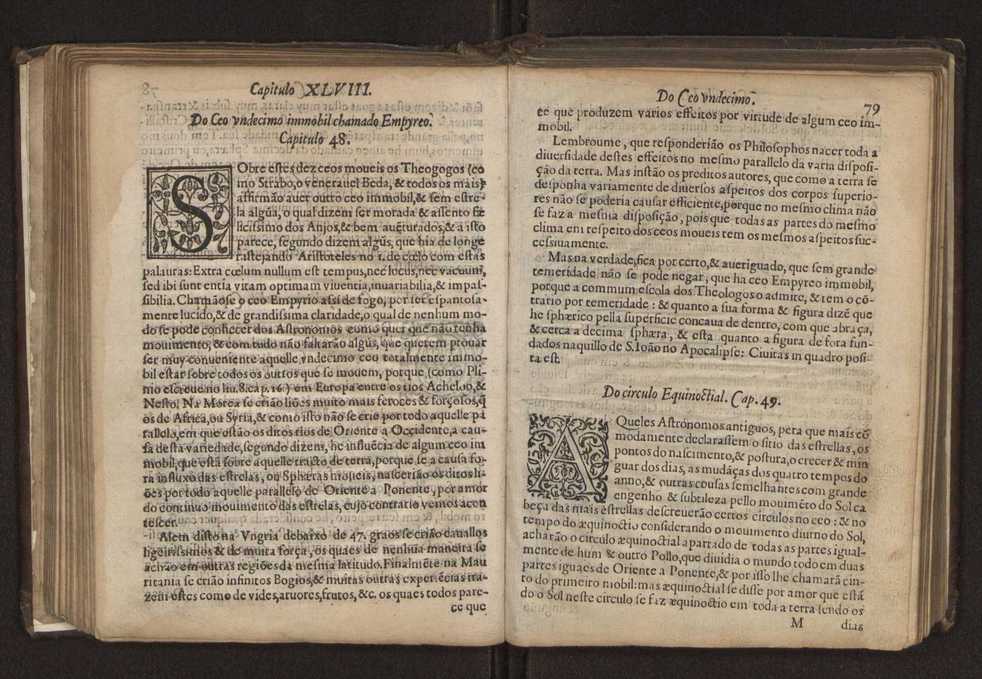 Capitulo XLVIII.
Do Ceo vndecimo immobil chamado Empyreo.
Capitulo 48.
SObre estes dez ceos moueis os Theogogos (co
mo Strabo, o venerauel Beda, & todos os mais)
affirmão auer outro ceo immobil, & sem estre-
la algũa, o qual dizem ser morada & assento fe
licissimo dos Anjos, & bem auẽturados, & a isto
parece, segundo dizem algũs, que hia de longe
rastejando Aristoteles no 1. de cœlo com estas
palauras: Extra cœlum nullum est tempus, nec locus, nec vacuũ,
sed ibi sunt entia vitam optimam viuentia, inuariabilia, & impas-
sibilia. Chamãose o ceo Empyrio assi de fogo, por ser espantosa-
mente lucido, & de grandissima claridade, o qual de nenhum mo-
do se pode conhecer dos Astronomos como quer que não tenha
mouimento, & com tudo não faltarão algũs, que querem prouar
ser muy conueniente aquelle vndecimo ceo totalmente immo-
bil estar sobre todos os outros que se mouem, porque (como Pli-
nio escreue no liu. 8. cap. 16.) em Europa entre os rios Acheloo, &
Nesto, Na Morea se crião liões muito mais feroces & forçosos, q̃
os de Africa, ou Syria, & como isto não se crie por todo aquelle pa
rallelo, em que estão os ditos rios de Oriente a Occidente, a cau-
sa desta variedade, segundo dizem, he influẽcia de algum ceo im
mobil, que està sobre aquelle tracto de terra, porque se a causa fo-
ra influxo das estrelas, ou Sphæras moueis, nascerião os ditos li-
ões por todo aquelle parallelo de Oriente a Ponente, por amor
do continuo mouimento das estrelas, cujo contrario vemos acon
tescer.
Alem disto na Vngria debaixo de 47. graos se crião cauallos
ligeirissimos & de muita força, os quaes de nenhũa maneira se
achão em outras regiões da mesma latitudo. Finalmẽte na Mau
ritania se crião infinitos Bogios, & muitas outras experiẽcias tra-
zem estes como de vides, aruores, frutos, &c. os quaes todos pare-
ce que
Do Ceo vndecimo.
79
ce que produzem varios effeitos por virtude de algum ceo im-
mobil.
Lembroume, que responderião os Philosophos nacer toda a
diuersidade destes effeitos no mesmo parallelo da varia disposi-
ção da terra. Mas instão os preditos autores, que como a terra se
desponha variamente de diuersos aspeitos dos corpos superio-
res não se poderia causar efficiente, porque no mesmo clima não
se faz a mesma disposição, pois que todas as partes do mesmo
clima em respeito dos ceos moueis tem os mesmos aspeitos suc-
cessiuamente.
Mas na verdade, fica por certo, & aueriguado, que sem grande
temeridade não se pode negar, que ha ceo Empyreo immobil,
porque a commum escola dos Theologos o admite, & tem o cõ-
trario por temeridade: & quanto a sua forma & figura dizẽ que
he sphærico pella superficie concaua de dentro, com que abraça,
& cerca a decima sphæra, & esta quanto a figura de fora fun-
dados naquillo de S. Ioão no Apocalipse: Ciuitas in quadro posi-
ta est
Do circulo Equinoctial. Cap. 49.
AQueles Astronomos antiguos, pera que mais cõ
modamente declarassem o sitio das estrellas, os
pontos do nascimento, & postura, o crecer & min
guar dos dias, as mudãças dos quatro tempos do
anno, & outras cousas semelhantes com grande
engenho & subtileza pello mouimẽto do Sol ca
beça das mais estrellas descreuerão certos circulos no ceo: & no
tempo do æquinoctio considerando o mouimento diurno do Sol,
acharão o circulo æquinoctial apartado de todas as partes igual-
mente de hum & outro Pollo, que diuidia o mundo todo em duas
partes iguaes de Oriente a Ponente, & por isso lhe chamarã cin-
to do primeiro mobil: mas æquinoctial se disse por amor que està
do o Sol neste circulo se faz æquinoctio em toda a terra sendo os
M
dias